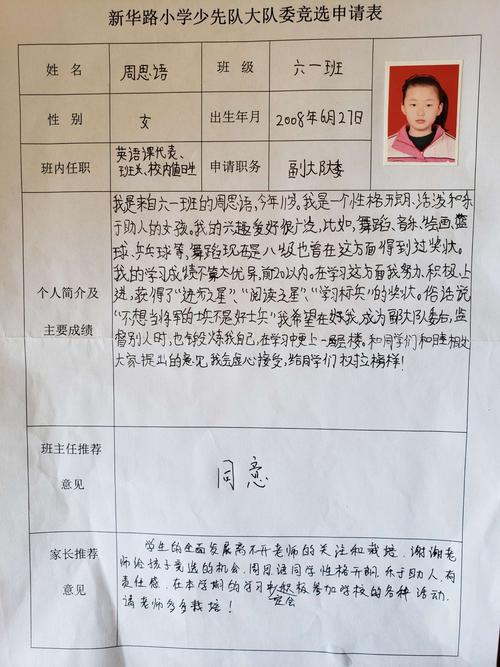 新华路小学少先队大队委竞选申请表
姓 名 周思语 班 级 六一班
性 别 女 出生年月 2008年6月27日
班内任职 英语课代表、班长、校内值日生 申请职务 副大队委
个人简介及主要成绩
我是来自六一班的周思语,今年11岁。我是一个性格开朗、活泼和乐
于助人的女孩。我的兴趣爱好很广泛,比如,舞蹈、音乐、绘画、篮
球、乒乓球等,舞蹈现在是八级也曾在这方面得到过奖状。
我的学习成绩不算太优异,前20以内。在学习这方面我努力、积极上
进,获得了“进步之星”、“阅读之星”、“学习标兵”的奖状。俗话说
“不想当将军的士兵不是好士兵”我希望在好我,成为副大队委后,监
督别人时,也锻炼我自己,在学习中更上一层楼。和同学们和睦相处
大家提出的意见,我会虚心接受,给同学们树立榜样!
班主任推荐
意见
同意
家长推荐
意见
学生的全面发展离不开老师的关注和栽培。谢谢老
师给孩子竞选的机会。周思语同学性格开朗,乐于助人,有
责任感。在本学期的学习中积极参加学校的各种活动。
定会
请老师多多栽培!